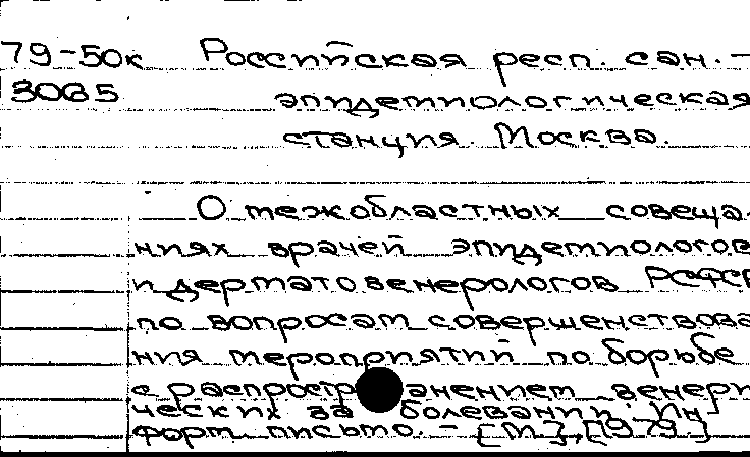 79-50к Российская респ. сан.-
3065 эпидемиологическая
станция. Москва.
О межобластных совеща-
ниях врачей эпидемиологов
и дерматовенерологов РСФСР
по вопросам совершенствова-
ния мероприятий по борьбе
с распространением венери-
ческих заболеваний. Ин-
форм. письмо. - [М.], [1979.]